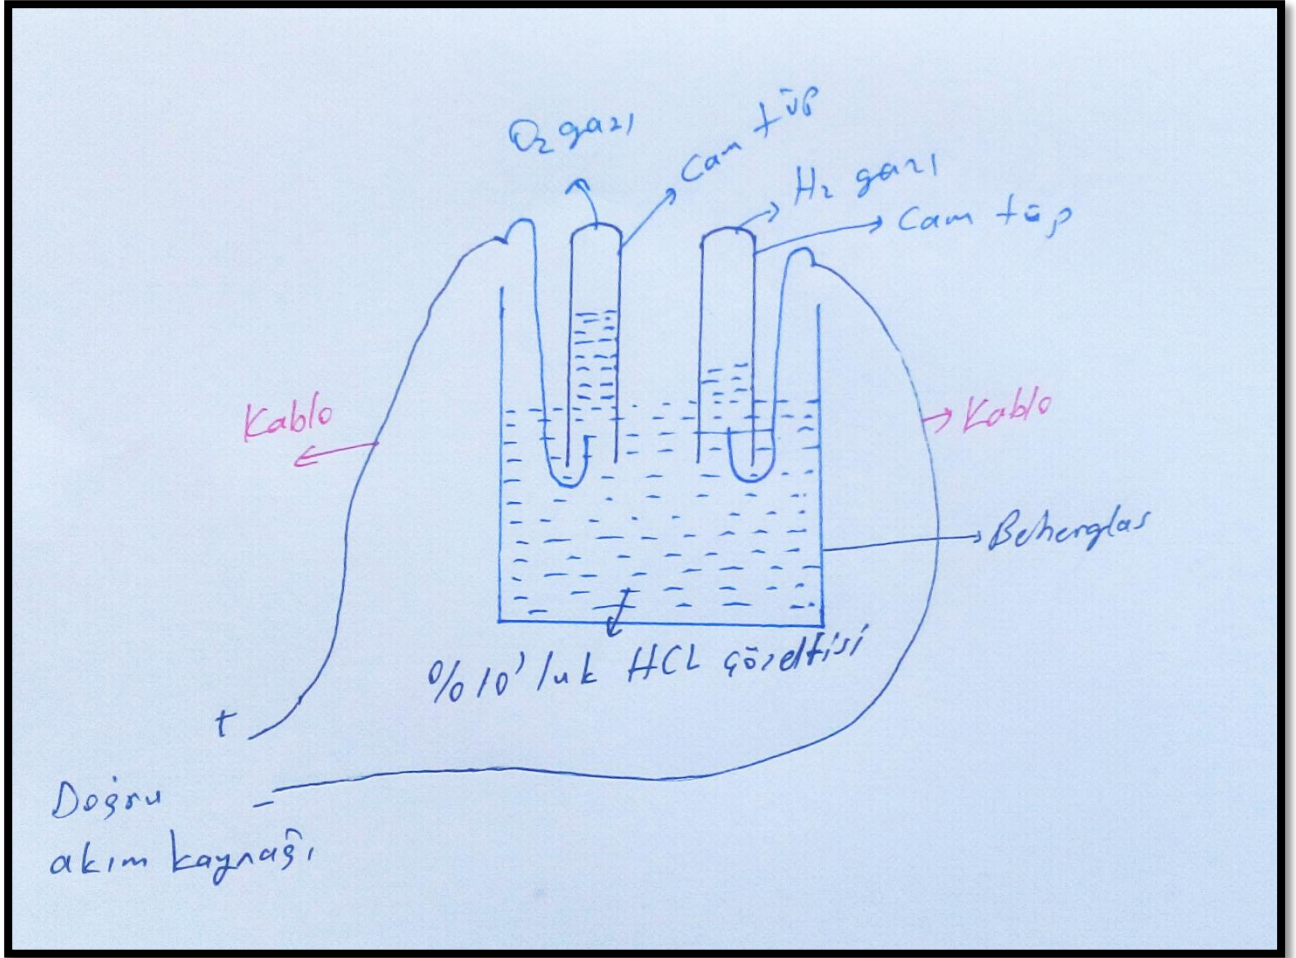 O2 gazı
Cam tüp
H2 gazı
Cam tüp
Kablo
Kablo
Beherglas
%10'luk HCL çözeltisi
+
Doğru
-
akım kaynağı